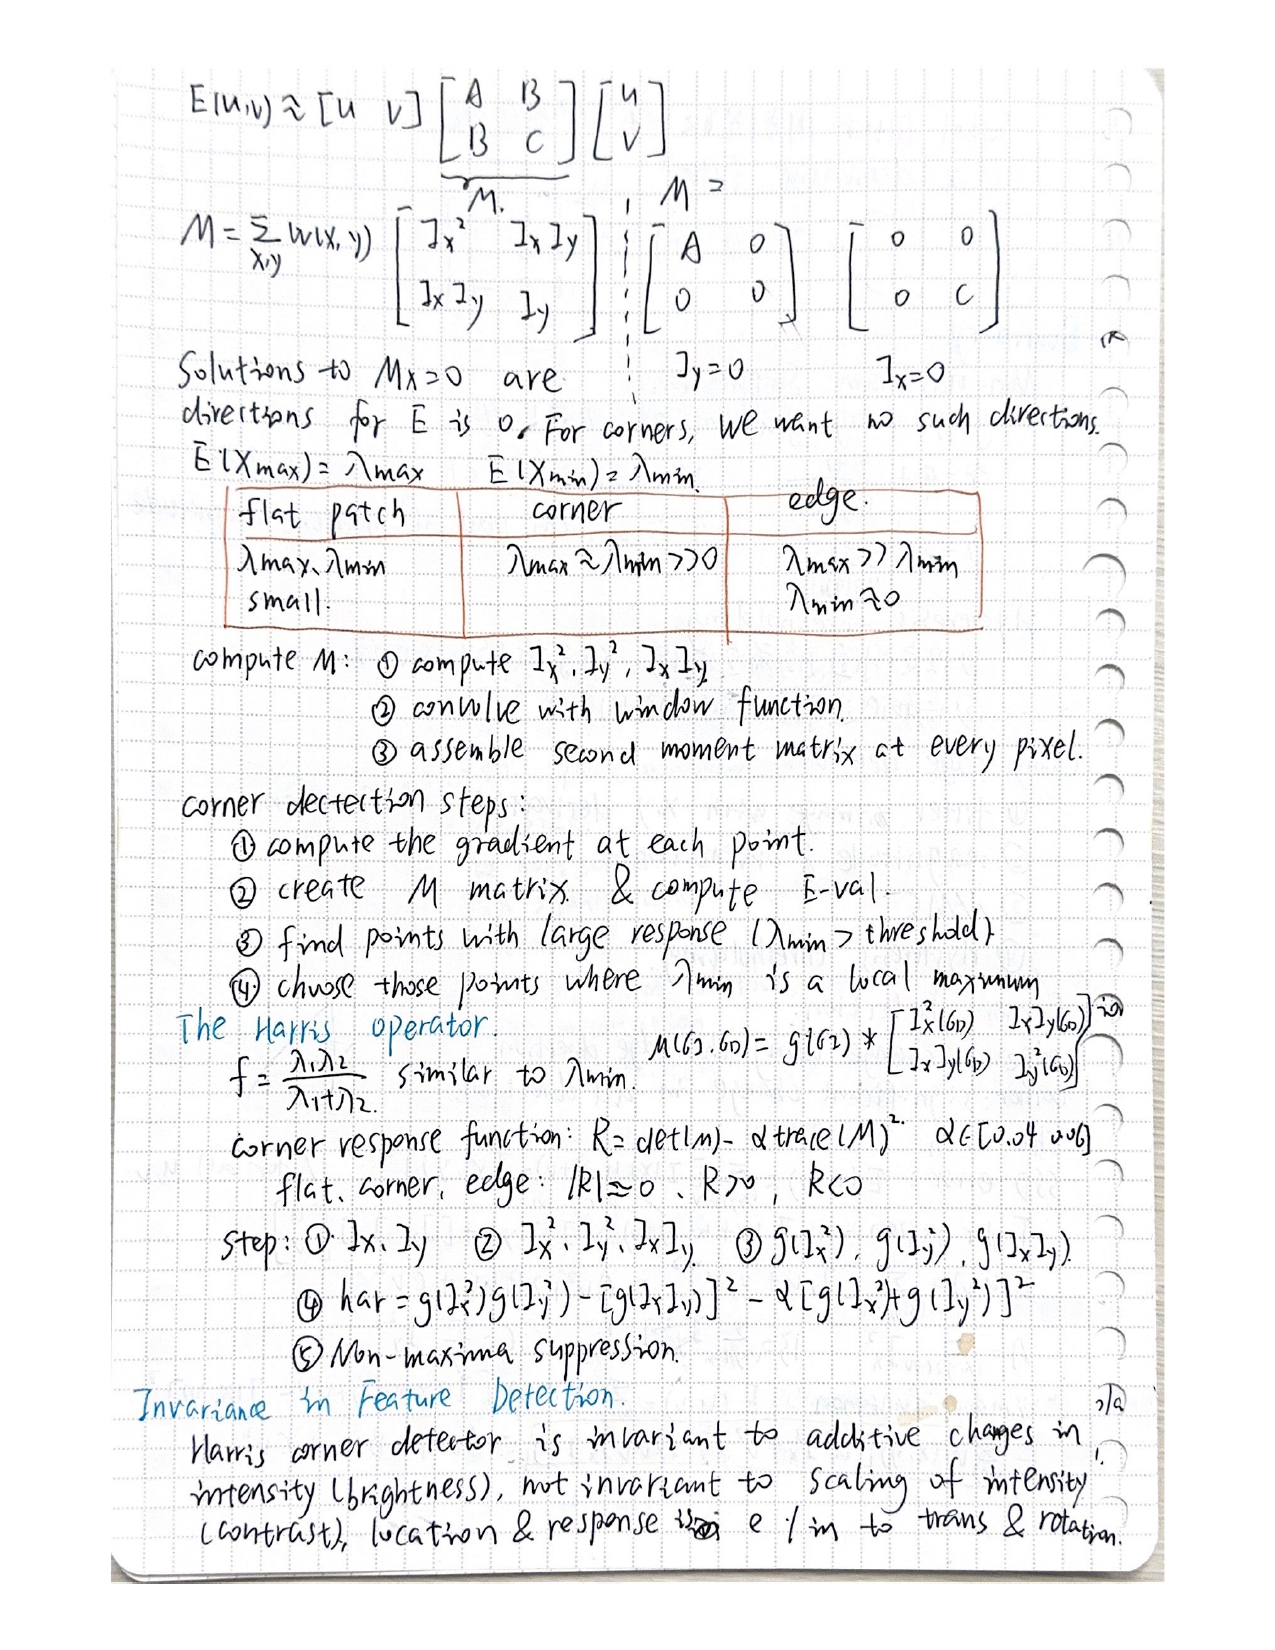 E(u,v) ≈ [u v] [A B; B C] [u; v]
M.
M = Σ_{x,y} w(x,y) [I_x² I_xI_y; I_xI_y I_y]
M =
[A 0; 0 0] [0 0; 0 C]
I_y=0 I_x=0
Solutions to Mx=0 are
directions for E is 0. For corners, we want no such directions.
E(Xmax) = λmax E(Xmin) = λmin.
flat patch corner edge.
λmax、λmin λmax ≈ λmin >>0 λmax >> λmin
small. λmin ≈ 0
compute M: ① compute I_x², I_y², I_xI_y
② convolve with window function.
③ assemble second moment matrix at every pixel.
corner dectection steps:
① compute the gradient at each point.
② create M matrix & compute E-val.
③ find points with large response (λmin > threshold)
④ choose those points where λmin is a local maximum
The Harris operator.
M(σ_I, σ_D) = g(σ_I) * [I_x²(σ_D) I_xI_y(σ_D); I_xI_y(σ_D) I_y²(σ_D)]
f = λ₁λ₂/(λ₁+λ₂) similar to λmin.
corner response function: R = det(M) - α trace(M)². α∈[0.04 0.06]
flat, corner, edge: |R|≈0、R>0, R<0
Step: ① I_x、I_y ② I_x², I_y², I_xI_y ③ g(I_x²), g(I_y²), g(I_xI_y)
④ har = g(I_x²)g(I_y²) - [g(I_xI_y)]² - α[g(I_x²)+g(I_y²)]²
⑤ Non-maxima suppression.
Invariance in Feature Detection.
Harris corner detector is invariant to additive changes in
intensity (brightness), not invariant to scaling of intensity
(contrast), location & response is e / in to trans & rotation.